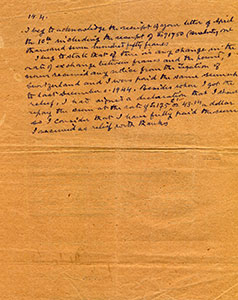 I beg to acknowledge the receipt of your letter of April
the 10th including the receipt of
thousand seven hundred fifty francs.
I beg to state that if there is any change in the
rate of exchange between francs and the pound, I
have received any advice from the Legation of
Switzerland and I was paid the same
to last December 1944. Besides when I got the
relief, I had signed a declaration that I should
repay the sum at the rate of 43.10 dollar
so I consider that I have fully paid the sum
I received as relief with thanks